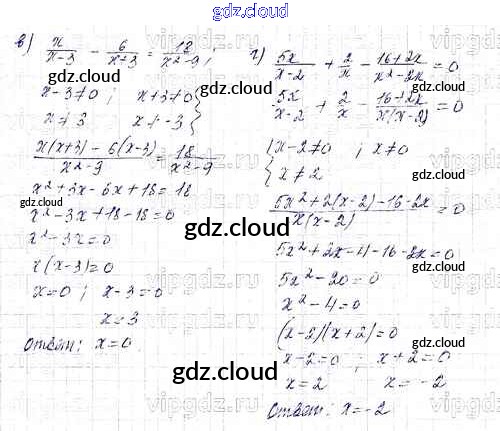 gdz.cloud
в) x/(x-3) - 6/(x+3) = 18/(x²-9);
x-3≠0; x+3≠0
x≠3 x≠-3
(x(x+3) - 6(x-3))/(x²-9) = 18/(x²-9)
x²+3x-6x+18=18
x²-3x+18-18=0
x²-3x=0
x(x-3)=0
x=0; x-3=0
x=3
Ответ: x=0
г) 5x/(x-2) + 2/x - (16+2x)/(x²-2x) = 0
5x/(x-2) + 2/x - (16+2x)/(x(x-2)) = 0
{x-2≠0; x≠0
x≠2
(5x²+2(x-2)-16-2x)/(x(x-2)) = 0
5x²+2x-4-16-2x=0
5x²-20=0
x²-4=0
(x-2)(x+2)=0
x-2=0; x+2=0
x=2 x=-2
Ответ: x=-2
gdz.cloud
gdz.cloud
gdz.cloud
gdz.cloud
gdz.cloud
gdz.cloud
gdz.cloud
gdz.cloud